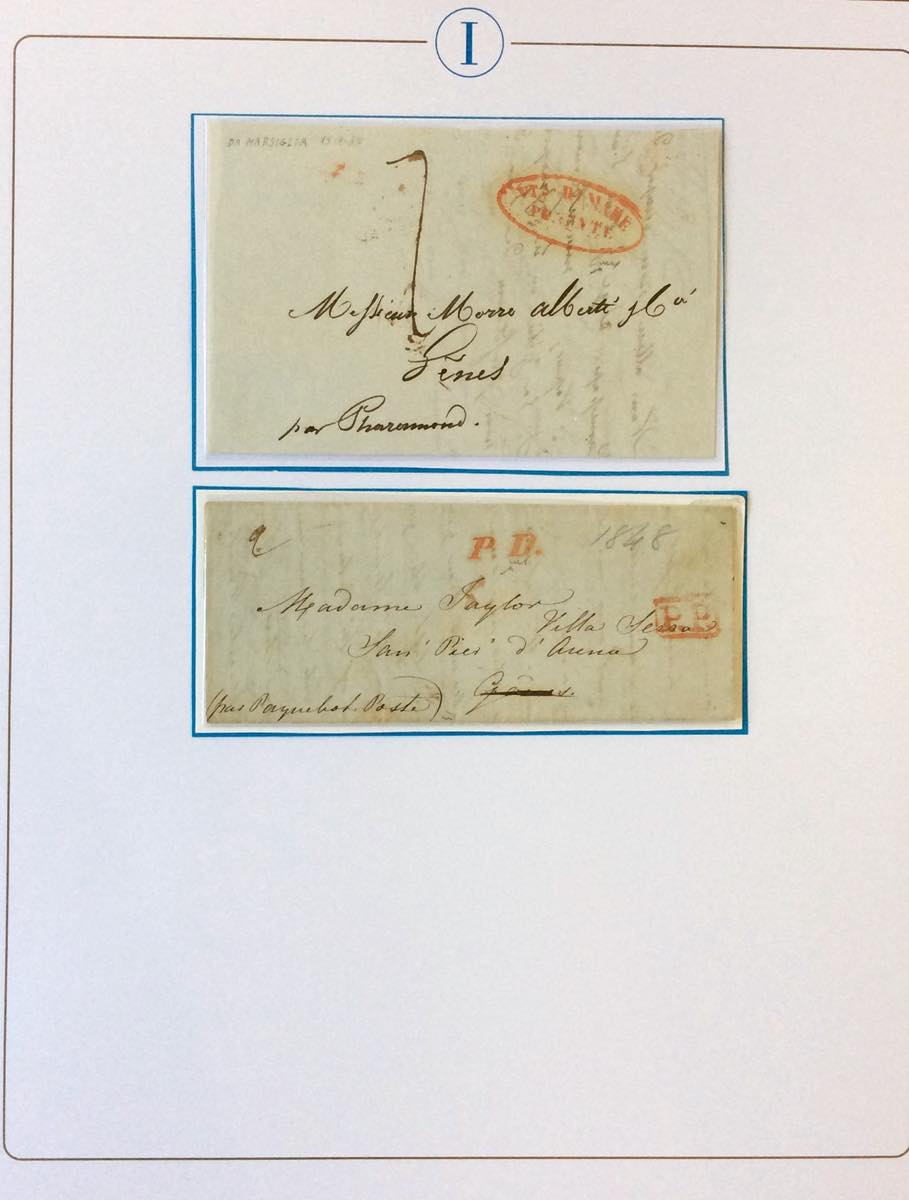 I
DA MARSIGLIA
VIA DI MARE
7
Messieurs Morro Alberti & Cº
Gênes
par Pharamond.
P. D.
1848
2
Madame Taylor
Villa Serra
P.P.
San Pier d'Arena
Gênes.
(par Paquebot Poste)